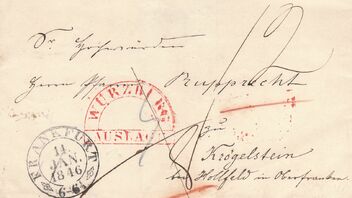 Sr. Hochwürden
Herrn Pfr Rupprecht
WÜRZBURG
AUSLAGE
FRANKFURT
11
JAN.
1846
zu
Krögelstein
bei Hollfeld in Oberfranken.